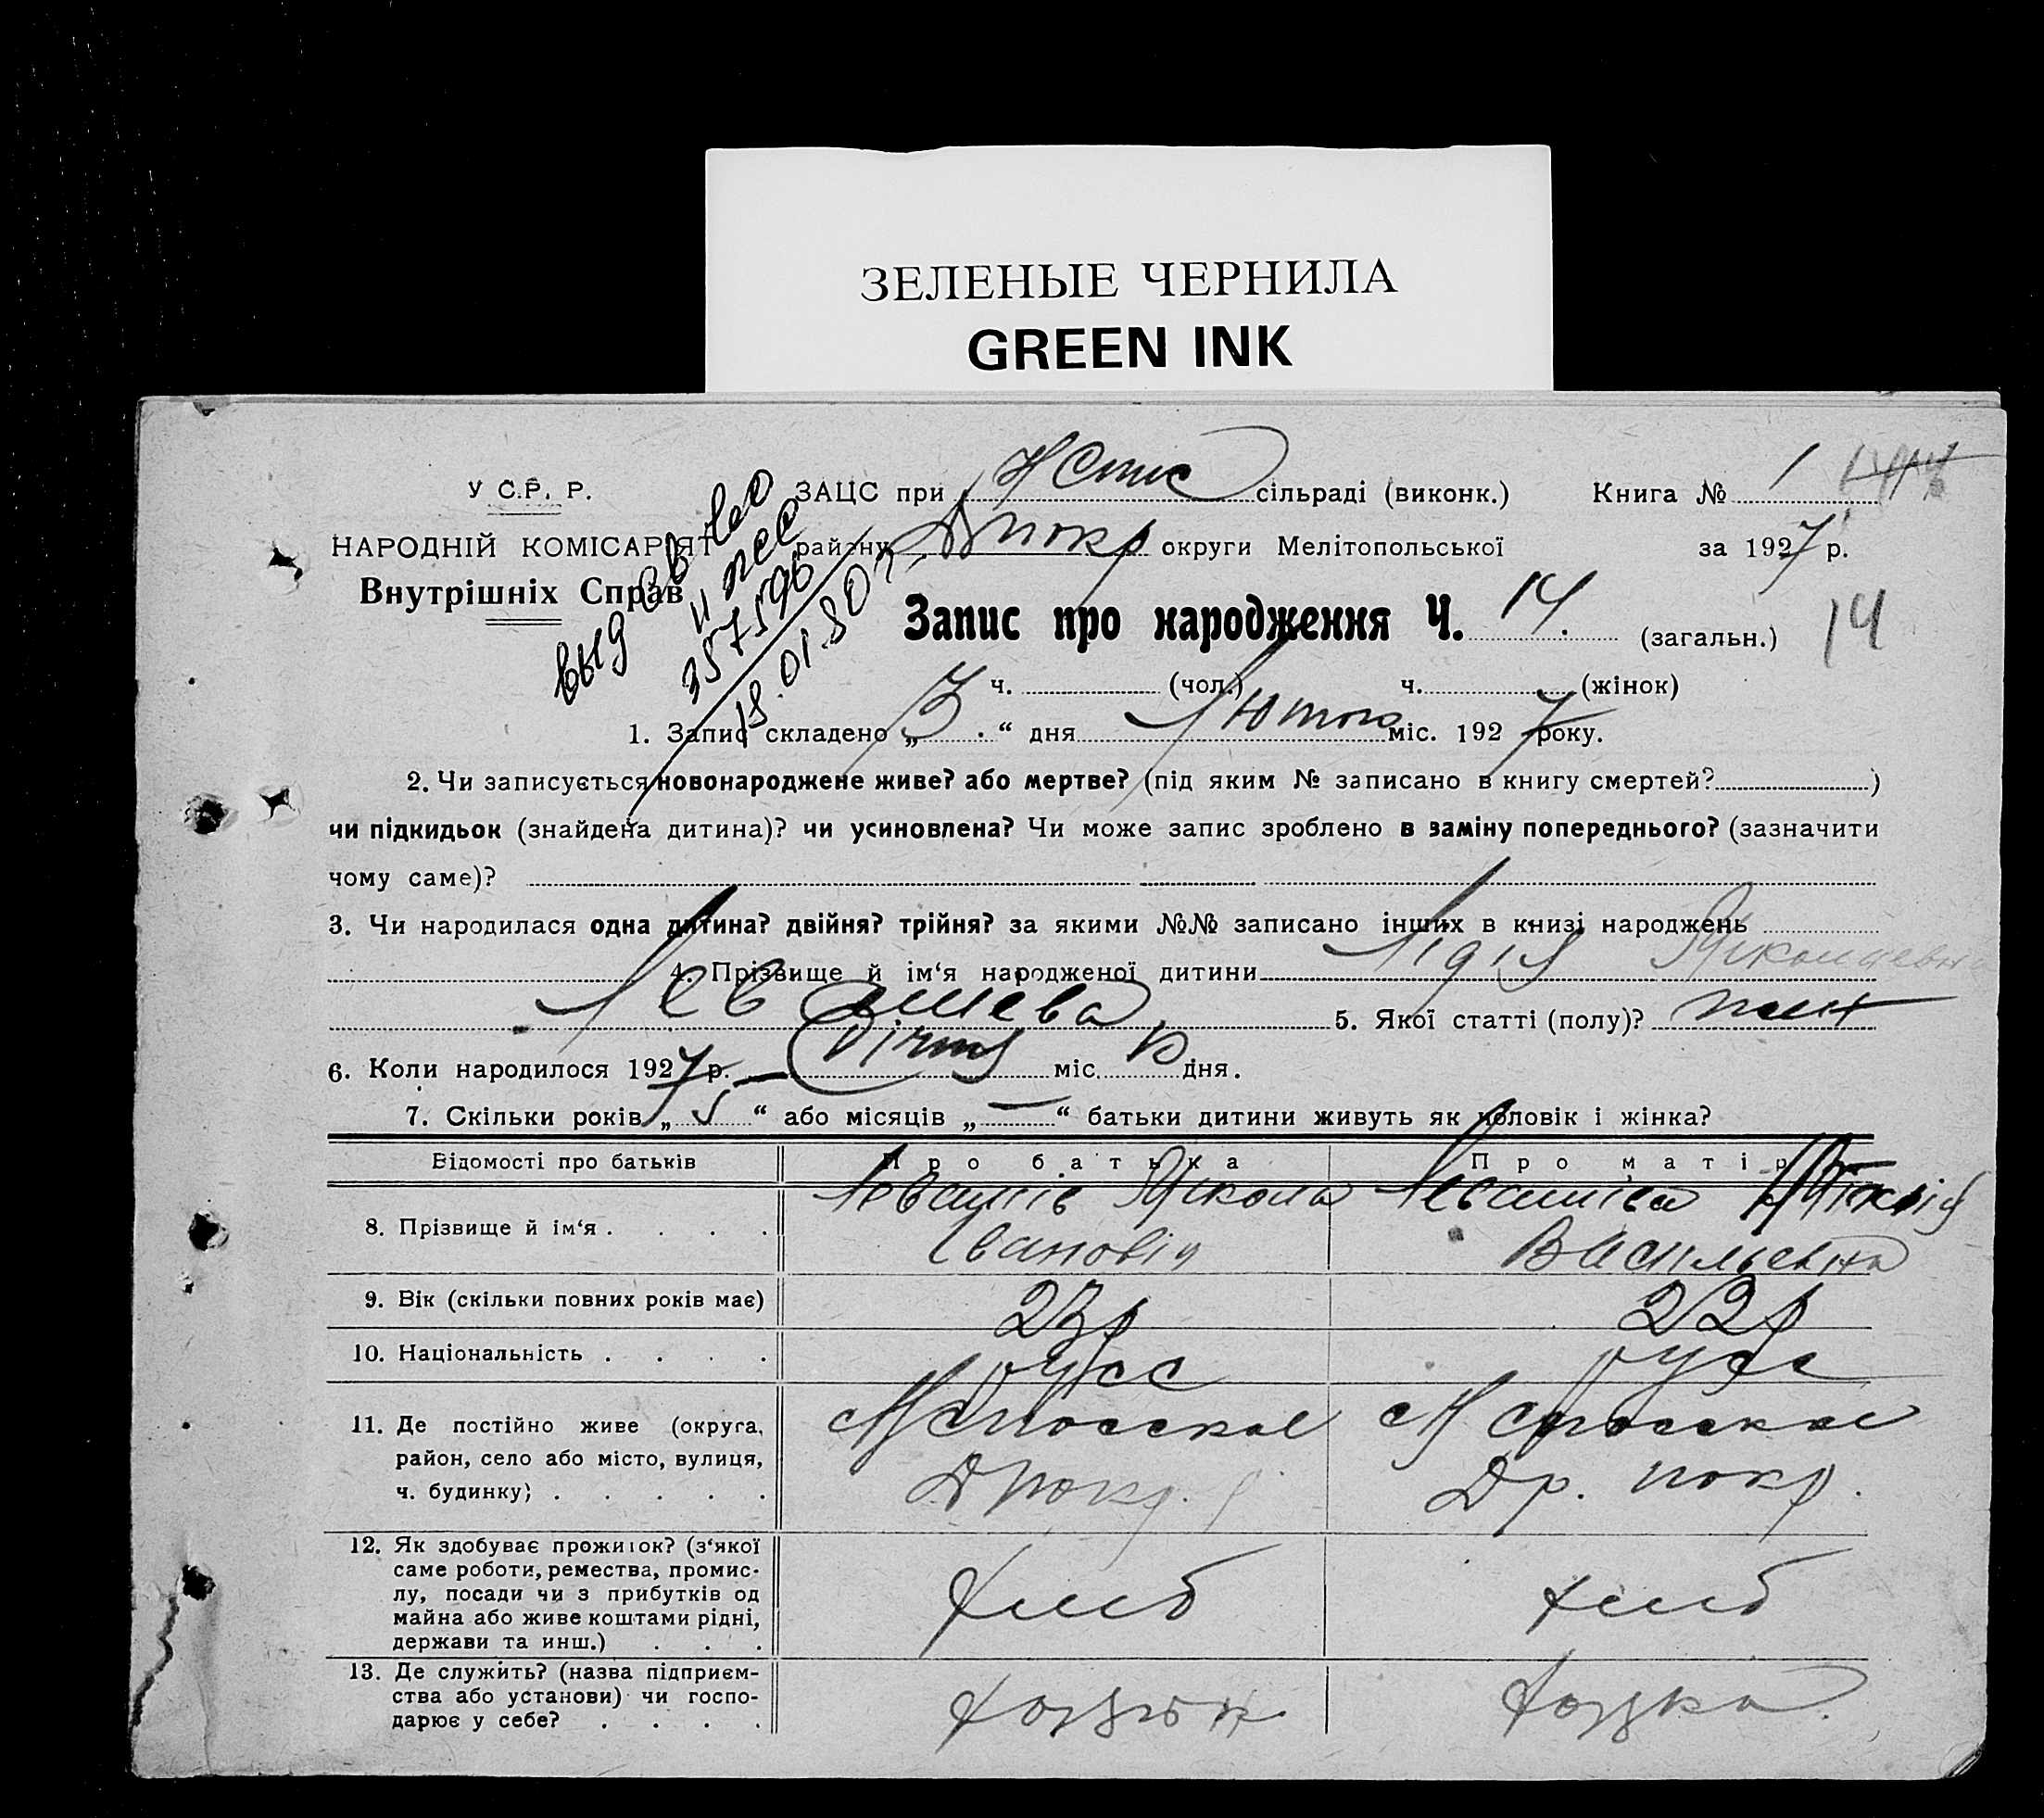 ЗЕЛЕНЫЕ ЧЕРНИЛА
GREEN INK
У С.Р. Р.
НАРОДНІЙ КОМІСАРІЯТ
Внутрішніх Справ
357596
18.01.80
ЗАЦС при сільраді (виконк.) Книга № 1
району Дпокр округи Мелітопольської за 1927 р.
Запис про народження Ч. 14. (загальн.) 14
ч. (чол.) ч. (жінок)
1. Запис складено „ 3 . “ дня Лютого міс. 1927 року.
2. Чи записується новонароджене живе? або мертве? (під яким № записано в книгу смертей? )
чи підкидьок (знайдена дитина)? чи усиновлена? Чи може запис зроблено в заміну попереднього? (зазначити
чому саме)?
3. Чи народилася одна дитина? двійня? трійня? за якими №№ записано інших в книзі народжень
4. Прізвище й ім‘я народженої дитини Лідія Миколаевна
Левашева 5. Якої статті (полу)? жен
6. Коли народилося 1927 р. — Січня міс. дня.
7. Скільки років „ 5 “ або місяців „ — “ батьки дитини живуть як чоловік і жінка?
Відомості про батьків Про батька Про матір
8. Прізвище й ім‘я . . . . Левашів Микола Левашіва
Іванович Васильевна
9. Вік (скільки повних років має) 23р 22р
10. Національність . . . . русс русс
11. Де постійно живе (округа, Спасское Спасское
район, село або місто, вулиця, Дпокр. р. Др. покр.
ч. будинку) . . . . .
12. Як здобуває прожиток? (з‘якої
саме роботи, ремества, промис-
лу, посади чи з прибутків од хліб хліб
майна або живе коштами рідні,
держави та инш.) . . .
13. Де служить? (назва підприєм-
ства або установи) чи госпо- хозяін хозяйка
дарює у себе? . . . .